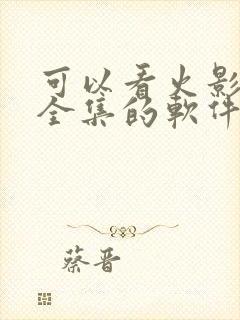 可以看火影
全集的軟件
蔡晋